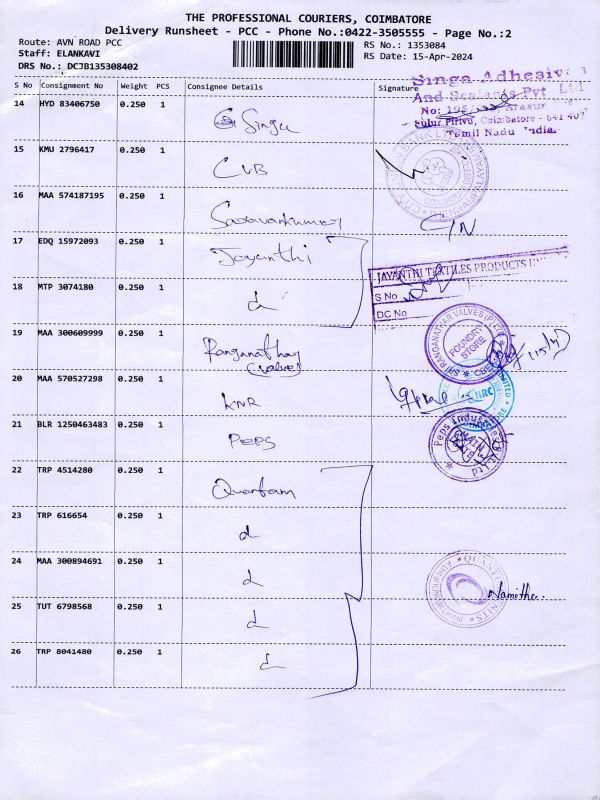 THE PROFESSIONAL COURIERS, COIMBATORE
Delivery Runsheet - PCC - Phone No.:0422-3505555 - Page No.:2
Route: AVN ROAD PCC RS No.: 1353084
Staff: ELANKAVI RS Date: 15-Apr-2024
DRS No.: DCJB135308402
S No Consignment No Weight PCS Consignee Details Signature
Singa Adhesives
And Sealants Pvt Ltd
14 HYD 83406750 0.250 1 Singa
Coimbatore - 641 407
Tamil Nadu India
15 KMU 2796417 0.250 1 CUB
16 MAA 574187195 0.250 1 Saravankumar
17 EDQ 15972093 0.250 1 Jayanthi
JAYANTHI TEXTILES PRODUCTS
18 MTP 3074180 0.250 1 d
S No
DC No
19 MAA 300609999 0.250 1 Ranganathar
(valves)
SRI RANGANATHAR VALVES (P) LTD
FOUNDRY
STORE
20 MAA 570527298 0.250 1 LNR
21 BLR 1250463483 0.250 1 PEPS
Peps Industries
22 TRP 4514280 0.250 1 Quantam
23 TRP 616654 0.250 1 d
24 MAA 300894691 0.250 1 d
25 TUT 6798568 0.250 1 d
26 TRP 8041480 0.250 1 d